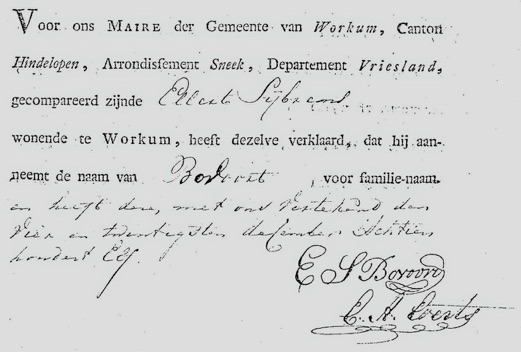 Voor ons MAIRE der Gemeente van Workum, Canton
Hindelopen, Arrondissement Sneek, Departement Vriesland,
gecompareerd zijnde Ellert Sijbrens
wonende te Workum, heeft dezelve verklaard, dat hij aan-
neemt de naam van , voor familie-naam.
en heeft deze, met ons Getekend den
Vier en twentigsten december Achtien
hondert Elf.
E S